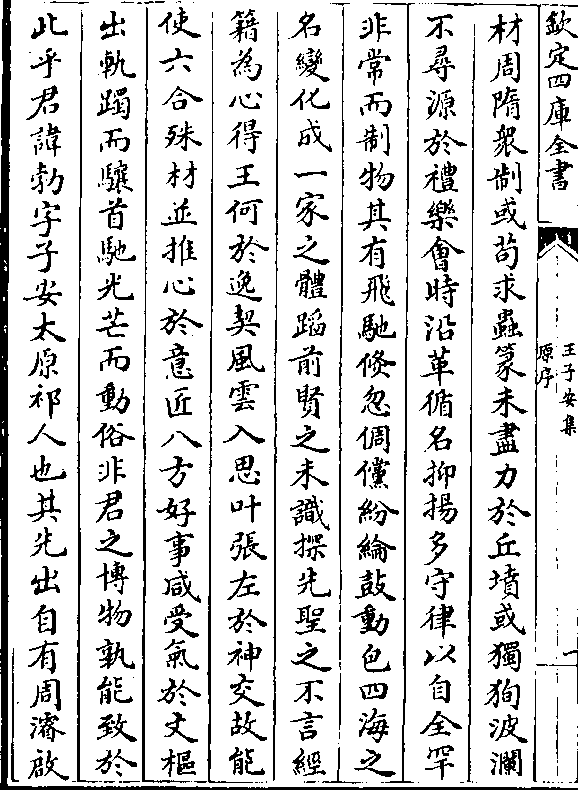 欽定四庫全書
王子安集
原序
一
材周隋衆制或苟求蟲篆未盡力於丘墳或獨狥波瀾
不尋源於禮樂會時沿革循名抑揚多守律以自全罕
非常而制物其有飛馳倐忽倜儻紛綸鼓動包四海之
名變化成一家之體蹈前賢之未識探先聖之不言經
籍為心得王何於逸契風雲入思叶張左於神交故能
使六合殊材並推心於意匠八方好事咸受氣於文樞
出軌躅而驤首馳光芒而動俗非君之博物孰能致於
此乎君諱勃字子安太原祁人也其先出自有周濬啟